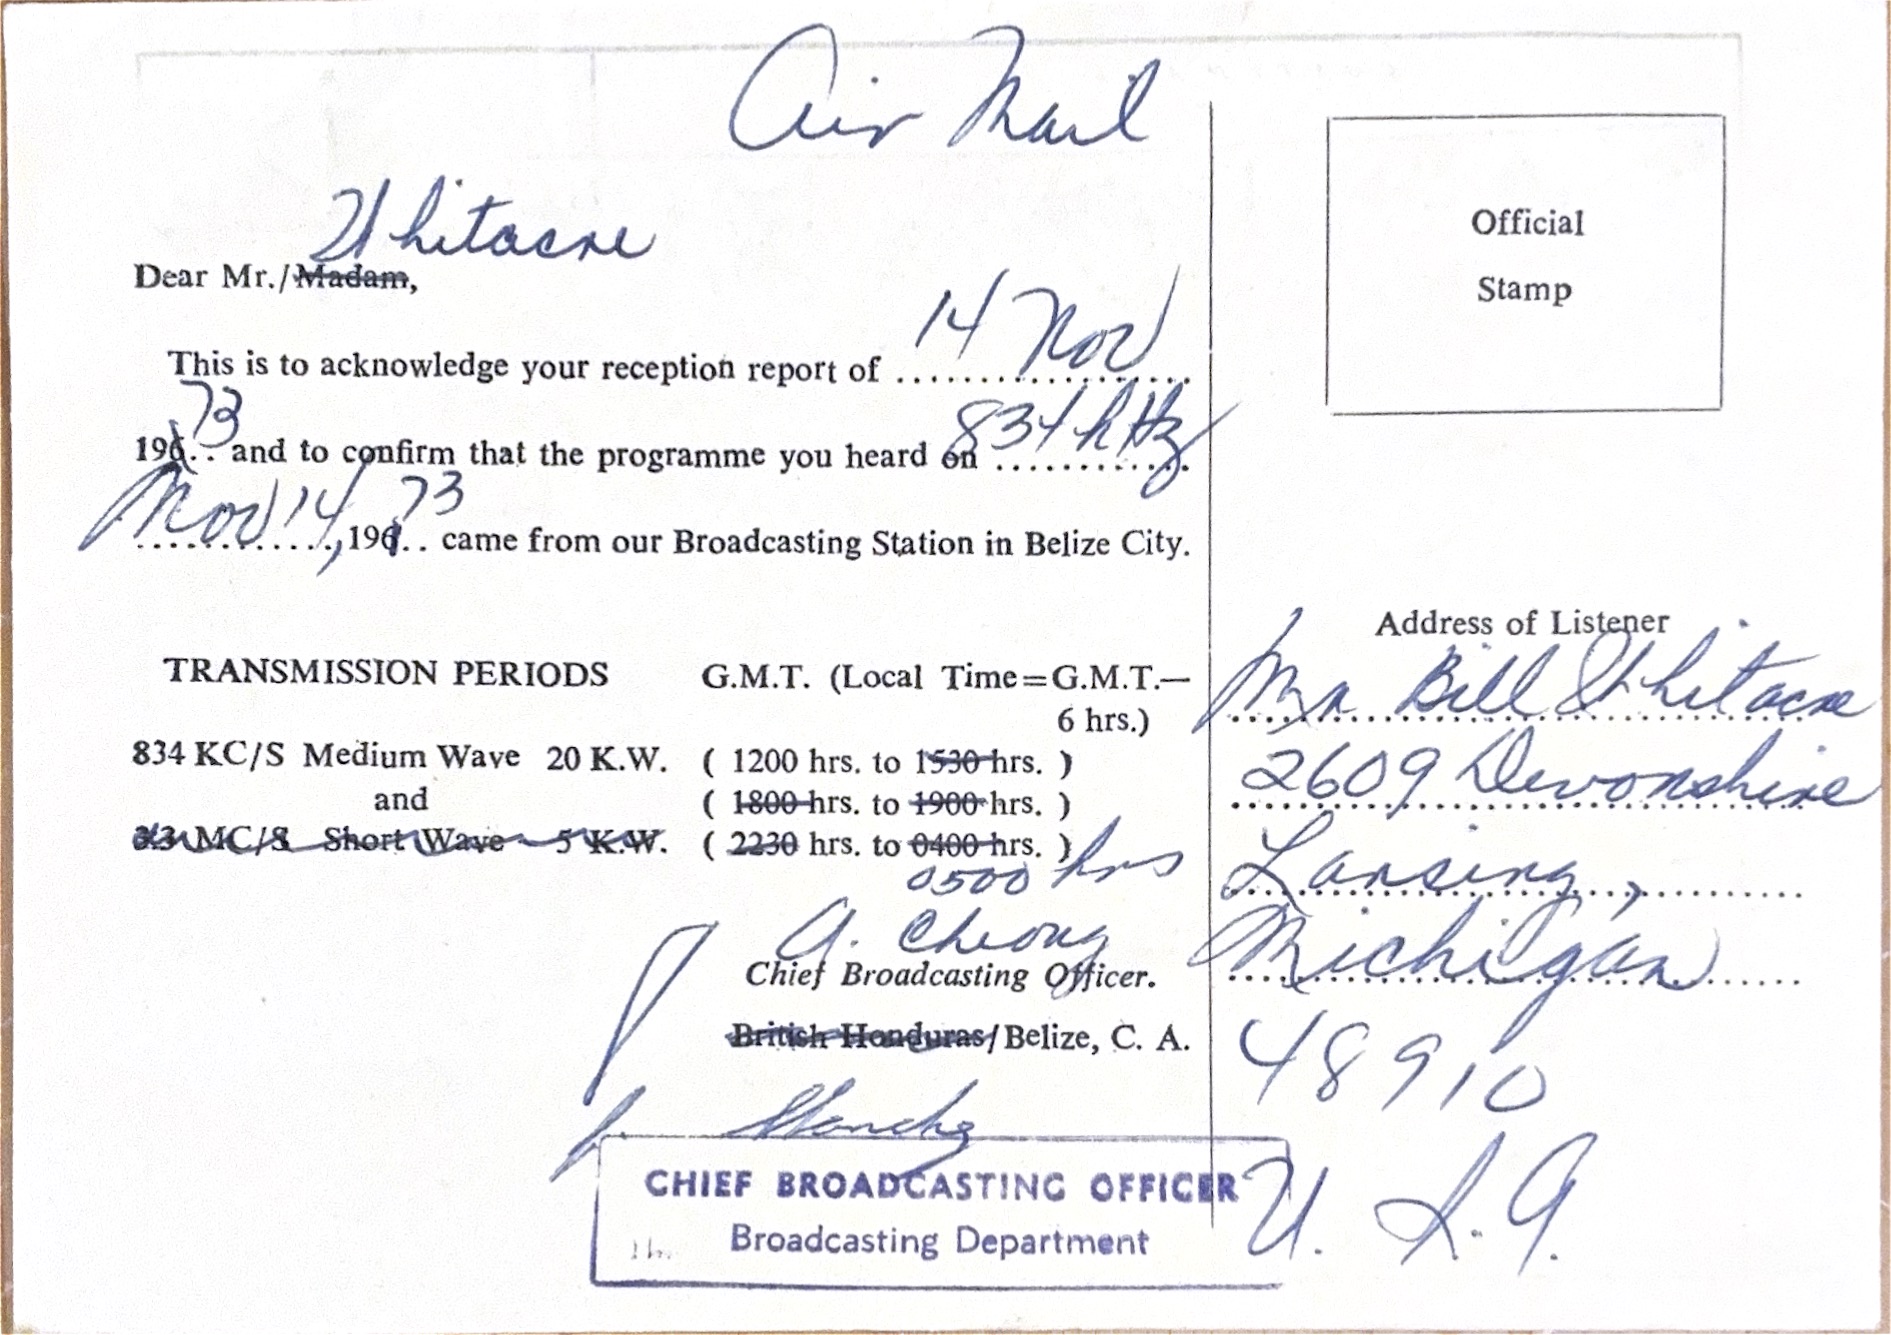 Air Mail
Whitacre
Dear Mr./Madam,
This is to acknowledge your reception report of 14 Nov
1973 and to confirm that the programme you heard on 834 kHz
Nov 14, 1973 came from our Broadcasting Station in Belize City.
TRANSMISSION PERIODS G.M.T. (Local Time=G.M.T.—
6 hrs.)
834 KC/S Medium Wave 20 K.W. ( 1200 hrs. to 1530 hrs. )
and ( 1800 hrs. to 1900 hrs. )
3.3 MC/S Short Wave 5 K.W. ( 2230 hrs. to 0400 hrs. )
0500 hrs
A. Cheong
Chief Broadcasting Officer.
British Honduras/Belize, C. A.
CHIEF BROADCASTING OFFICER
Broadcasting Department
Official
Stamp
Address of Listener
Mr Bill Whitacre
2609 Devonshire
Lansing,
Michigan
48910
U. S. A.